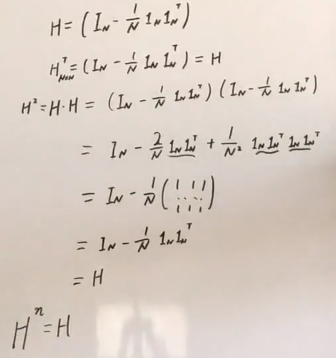 H = (I_N - 1/N 1_N 1_N^T)
H^T_{N×N} = (I_N - 1/N 1_N 1_N^T) = H
H² = H·H = (I_N - 1/N 1_N 1_N^T) (I_N - 1/N 1_N 1_N^T)
= I_N - 2/N 1_N 1_N^T + 1/N² 1_N 1_N^T 1_N 1_N^T
= I_N - 1/N (1 1 1 ... 1 1 1)
= I_N - 1/N 1_N 1_N^T
= H
H^n = H